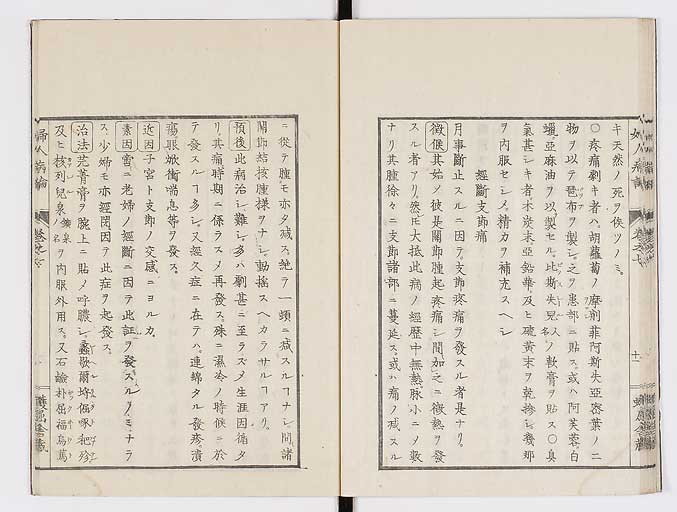 キ天然ノ死ヲ俟ツノミ。
〇疼痛劇キ者ハ。胡蘿蔔ノ摩剤菲阿斯失亞蜜葉ノ二
物ヲ以テ琶布ヲ製シ。之ヲ患部ニ貼ス。或ハ阿芙蓉。白
蠟。亞麻油ヲ以製セル。比斯失兒人名ノ軟膏ヲ貼ス〇臭
氣甚シキ者木炭末亞鉛華及ヒ硫黄末ヲ乾摻シ幾那
ヲ内服セシメ。精力ヲ補充スヘシ
經斷支節痛
月事斷止スルニ因テ支節疼痛ヲ發スル者是ナリ。
徴候其始メ彼是關節腫起疼痛シ間加之ニ微熱ヲ發
スル者アリ然𪜈大抵此病ノ經歴中無熱脉小ニメ數
ナリ其腫徐々ニ支節諸部ニ蔓延ス。或ハ痛ノ减スル
ニ從テ腫モ亦タ减ス。絶テ一頭ニ减スルヿナシ間諸
關節結核腫様ヲナシ動揺スヘカラサルヿアリ。
預後此病治シ難シ多ハ劇甚ニ至ラスメ生涯因循タ
リ。其痛時期ニ係ラスメ再發ス。殊ニ濕冷ノ時候ニ於
テ發スルヿ多シ。又經久症ニ在テハ。連綿タル發疹潰
瘍眼焮衝喘息等ヲ發ス。
近因子宮ト支節ノ交感ニヨルカ。
素因啻ニ老婦ノ經斷ニ因テ此証ヲ發スルノミナラ
ス。少婦モ亦經閉因テ此症ヲ起發ス。
治法芫菁膏ヲ腕上ニ貼メ呼膿シ
及ヒ核列兒泉鑛泉ノ名ヲ内服外用ス。又石鹸朴屈福烏篤
婦人病論
十二